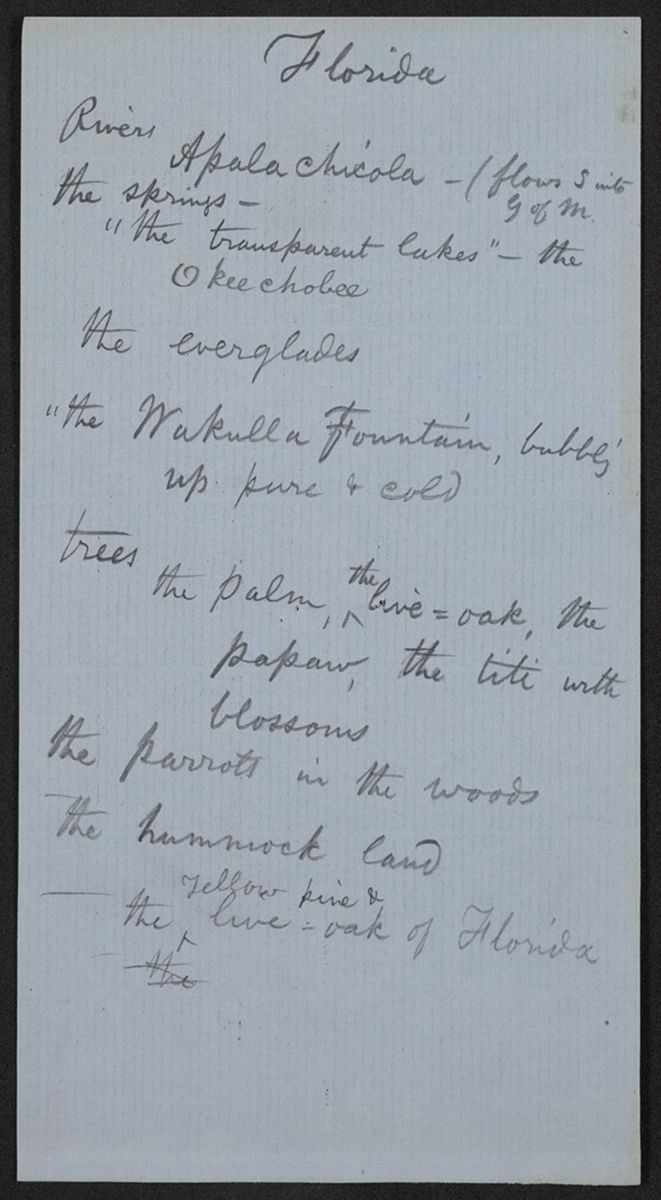 Florida
Rivers
Apalachicola – (flows S into
G of M.
the springs –
"the transparent lakes" – the
Okeechobee
the everglades
"the Wakulla Fountain, bubbl'g
up pure & cold
trees
the palm, the live=oak, the
papaw, the titi with
blossoms
the parrots in the woods
the hummock land
the yellow pine & live=oak of Florida
the